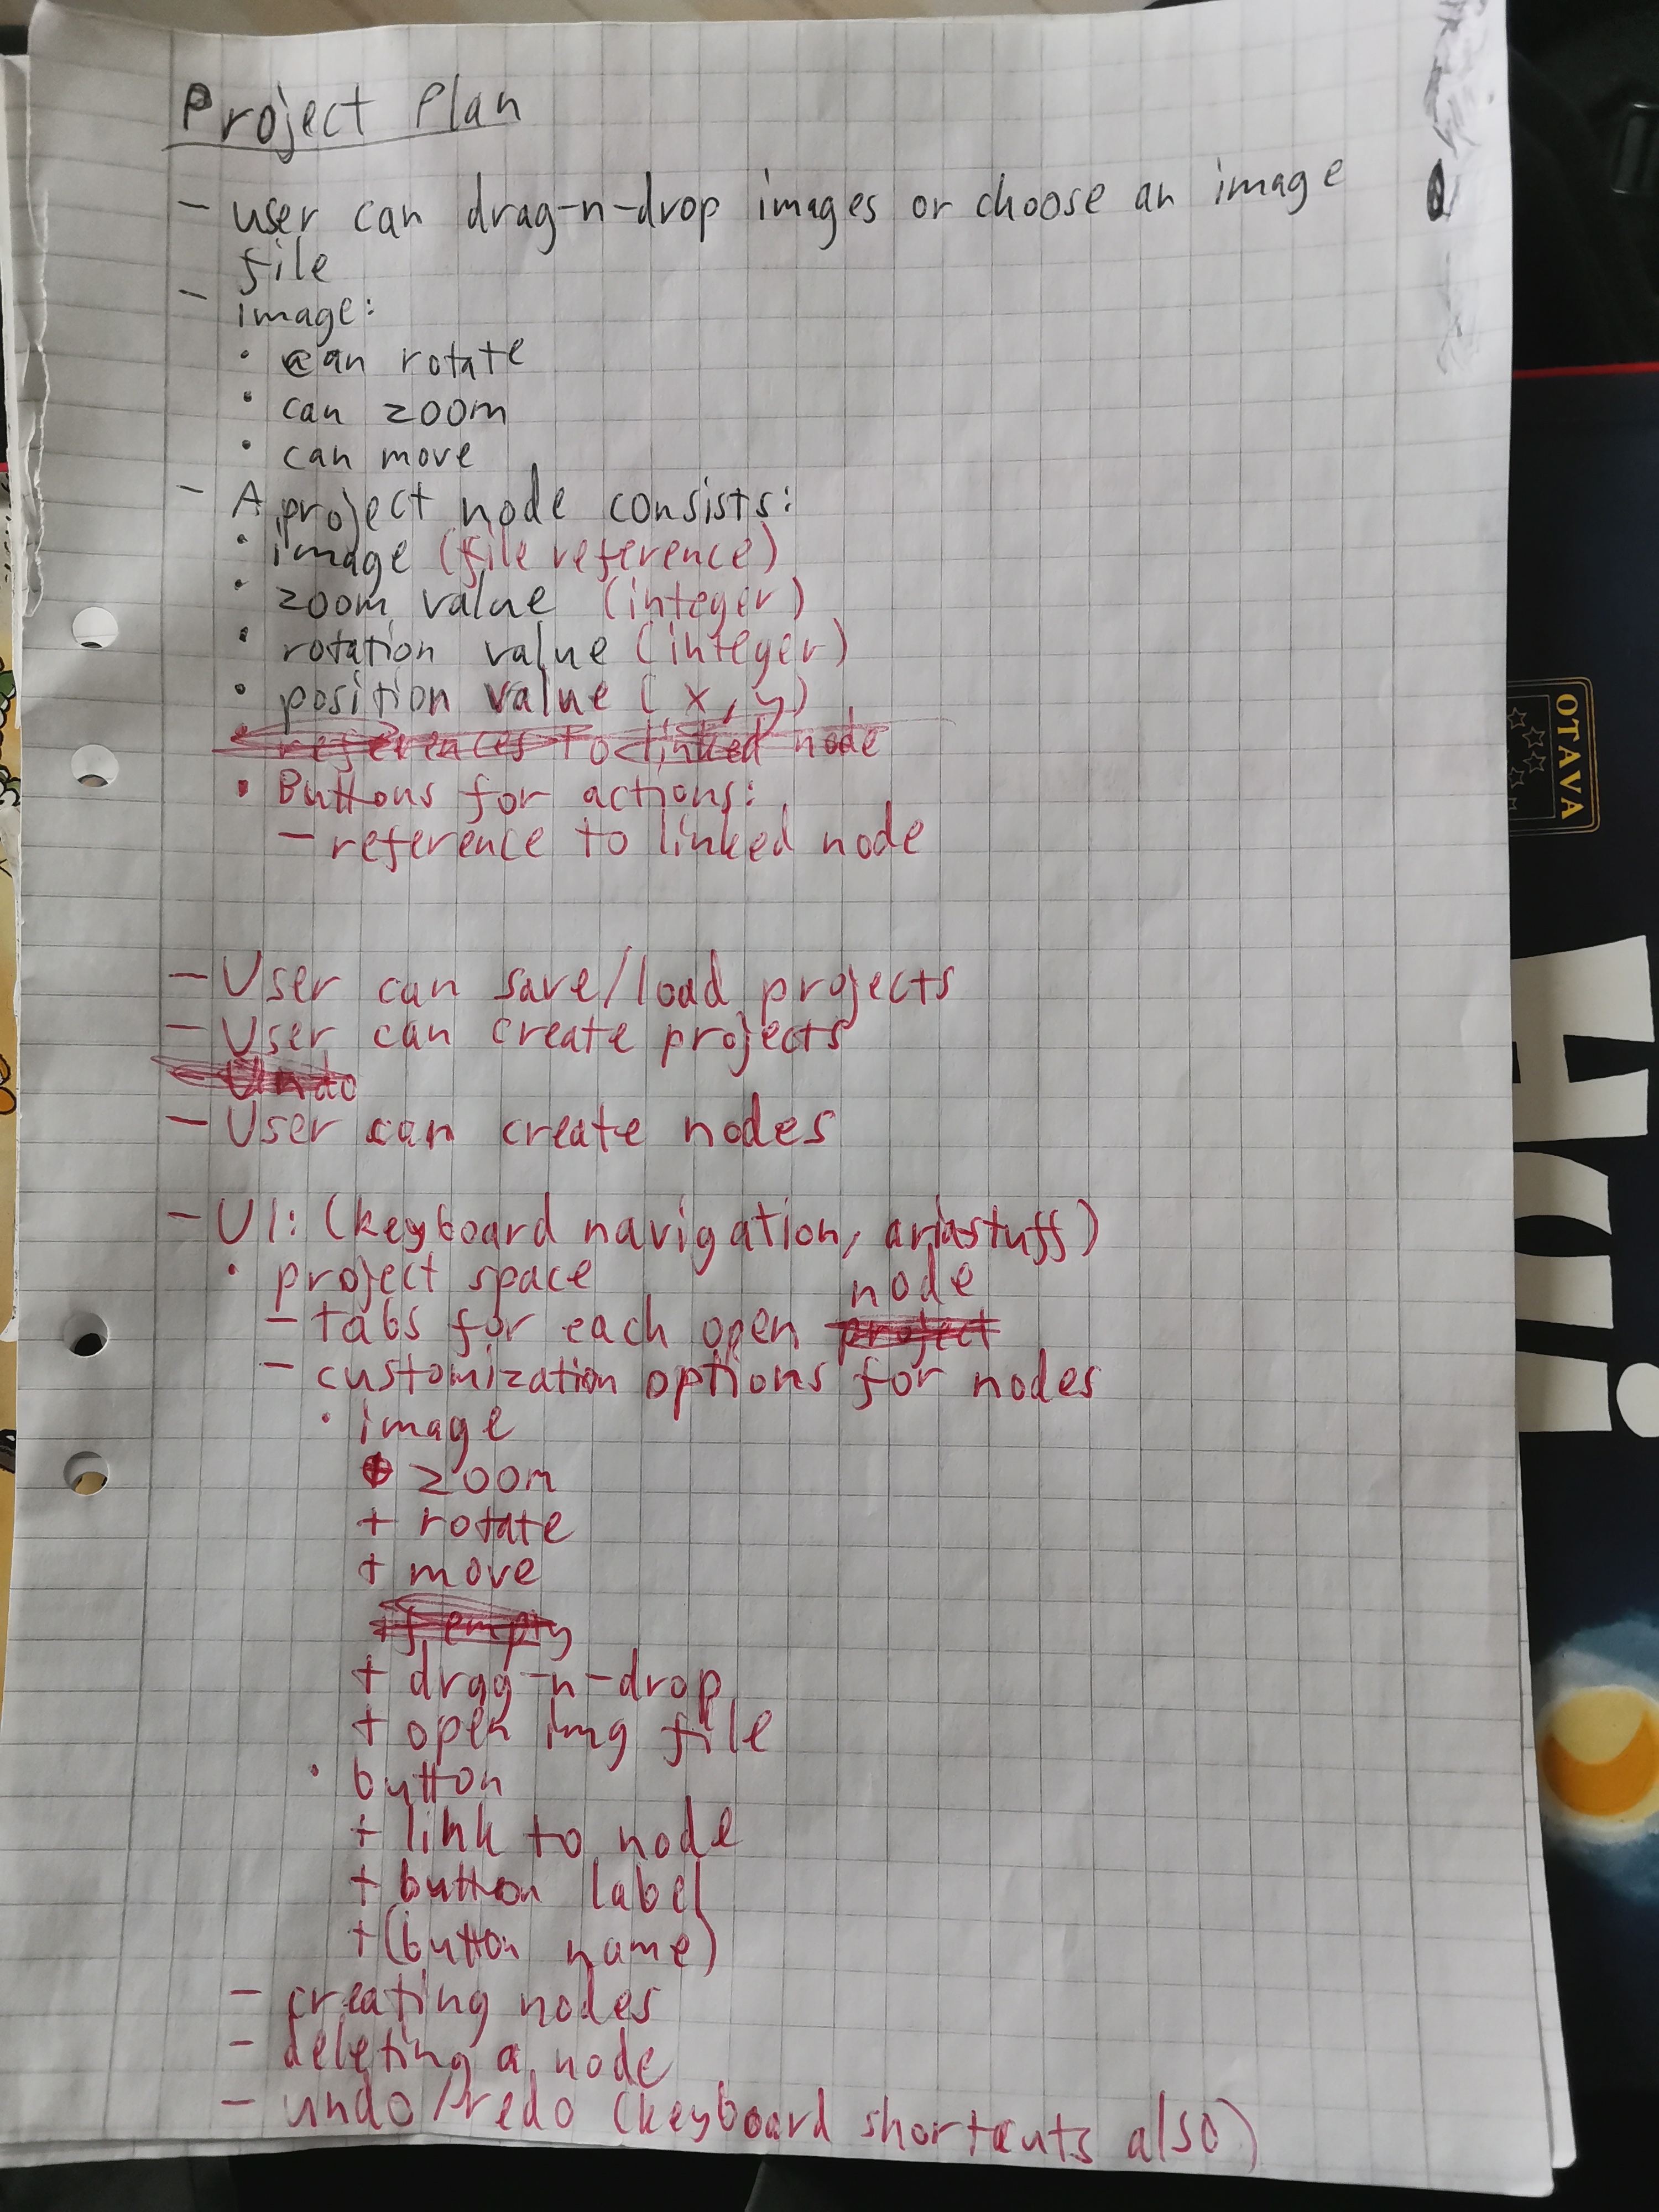 Project Plan
- user can drag-n-drop images or choose an image
file
- image:
• can rotate
• can zoom
• can move
- A project node consists:
• image (file reference)
• zoom value (integer)
• rotation value (integer)
• position value (x, y)
• references to linked node
• Buttons for actions:
- reference to linked node
- User can save/load projects
- User can create projects
- Undo
- User can create nodes
- UI: (keyboard navigation, aria stuff)
• project space
node
- tabs for each open project
- customization options for nodes
• image
+ zoom
+ rotate
+ move
if empty
+ drag-n-drop
+ open img file
• button
+ link to node
+ button label
+ (button name)
- creating nodes
- deleting a node
- undo/redo (keyboard shortcuts also)
OTAVA